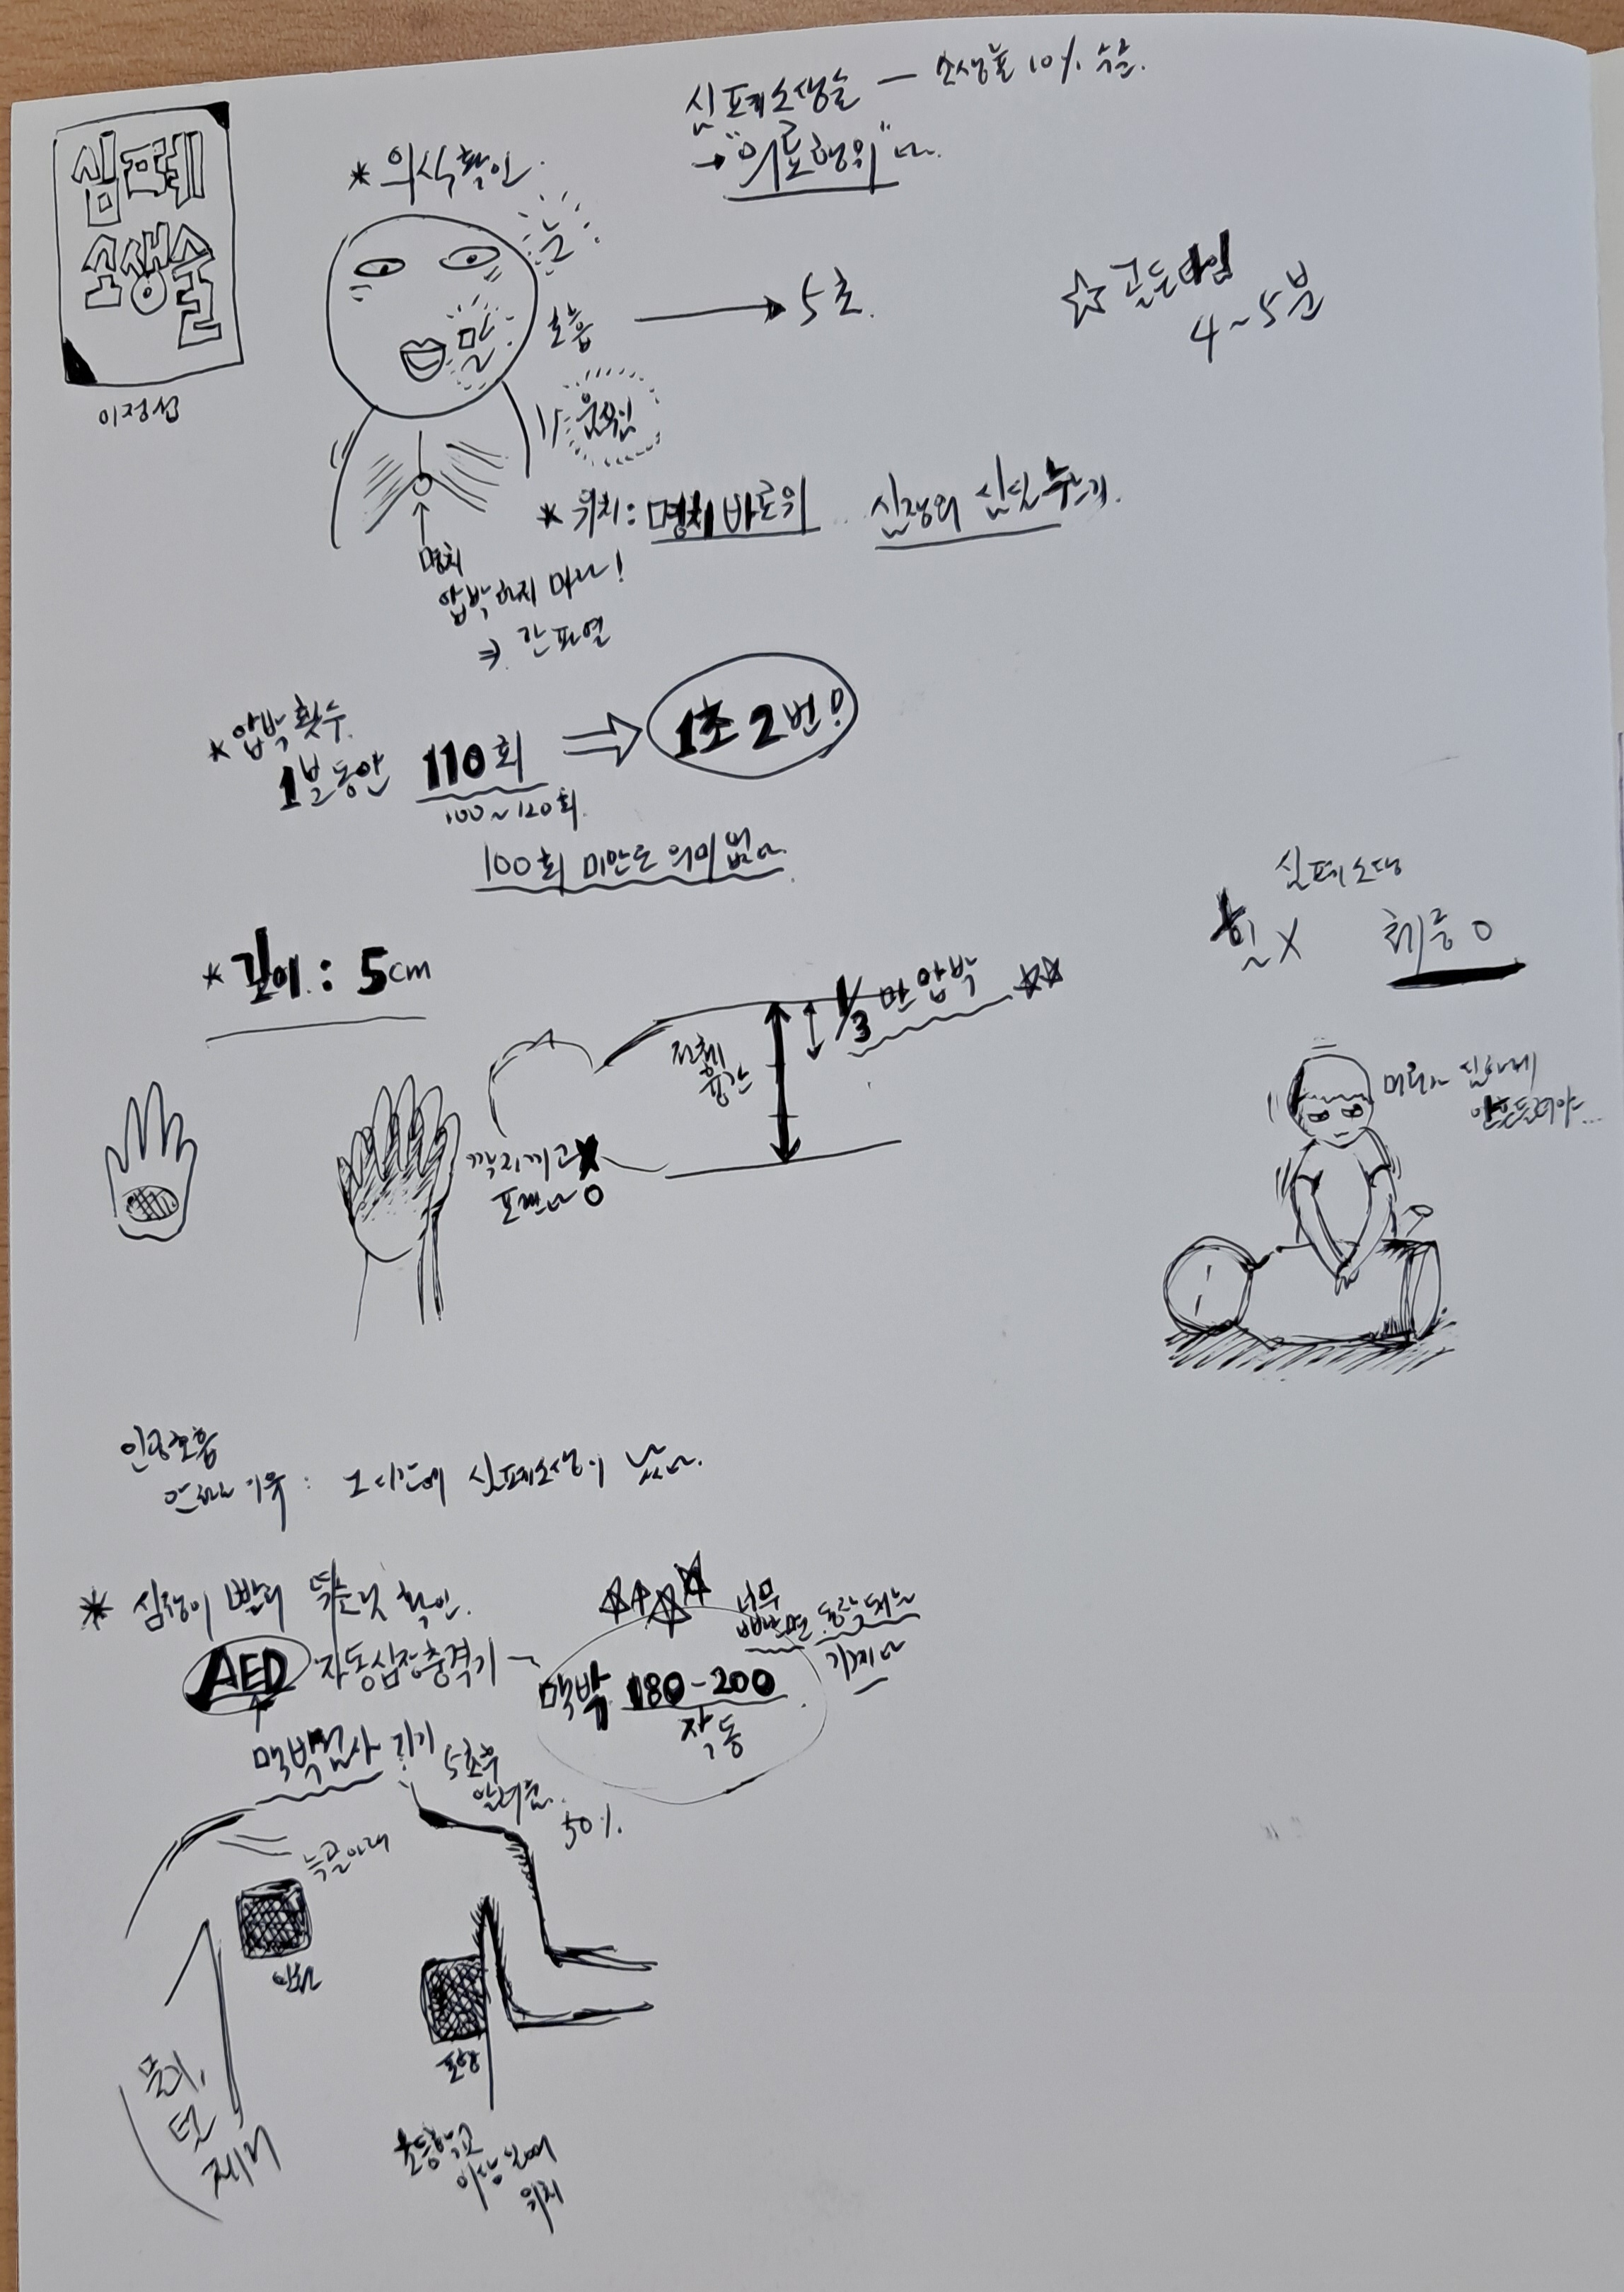 심폐
소생술
이정섭
심폐소생술 — 소생률 10% 수준.
→ "의료행위"
* 의식확인.
눈
말
호흡 → 5초.
움직임
☆ 골든타임
4~5분
* 위치: 명치 바로위 심장의 심실 누르기.
명치
압박하지 마라!
⇒ 간파열
* 압박 횟수.
1분동안 110회 ⇒ 1초 2번!
100~120회.
100회 미만은 의미 없다.
* 깊이: 5cm
전체
흉간
1/3만 압박 ☆☆
깍지끼고 X
O
심폐소생
힘 X 체중 O
인공호흡
안하는 이유: 그 시간에 심폐소생이 낫다.
* 심장이 빨리 뛰는 것 확인.
AED 자동심장충격기
☆☆☆☆
너무
빠르면 동작되는
기계
맥박 180-200
작동
맥박검사 기기
5초후
알려줌.
50%.
쇄골아래
초등학교
이상일때
위치
제거